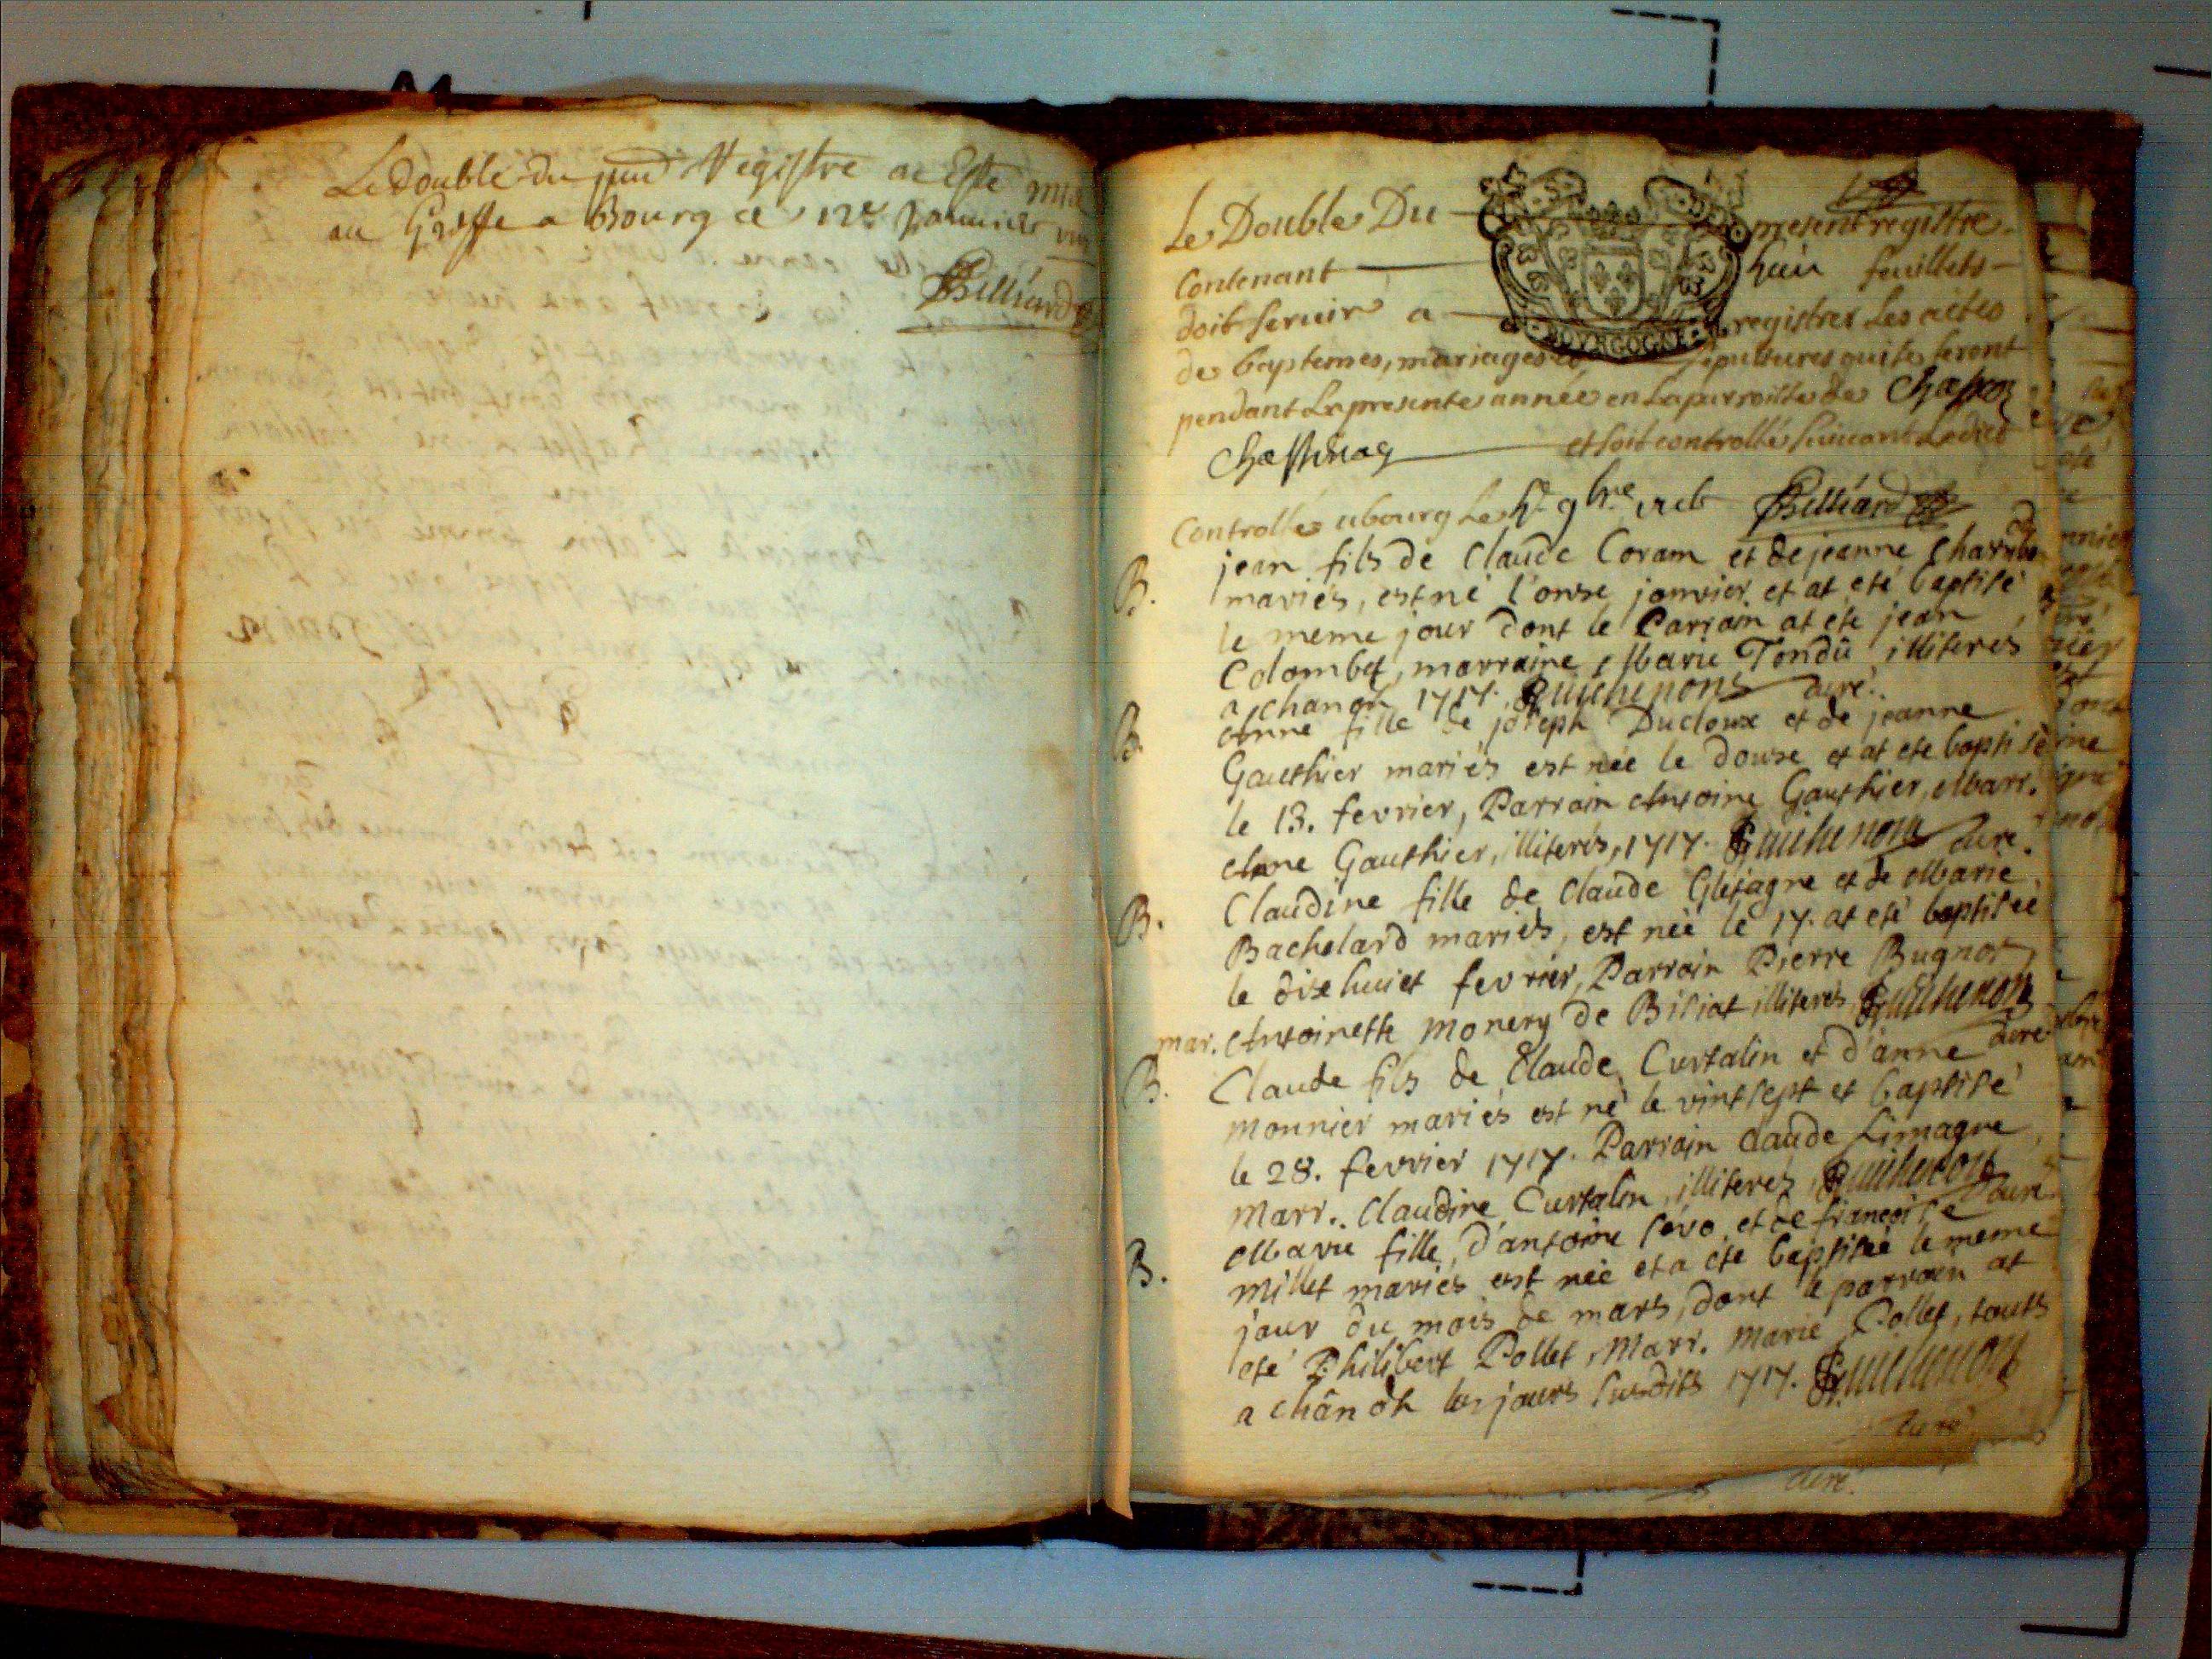 Le double du pnt Registre a Esté mis
au Greffe a Bourg ce 12e Januier
Billiard
Le Double Du present registre
Contenant huit feuillets
doit seruir a registrer Les actes
de baptemes, mariages et sepultures qui se feront
pendant La presente année en La parroisse de
Chastenay et soit controllé suiuant Ledict
Controllé a bourg Le 9bre Billiard
B. jean fils de Claude Coram et de jeanne
mariés, est né l'onse janvier et at eté baptisé
le meme jour dont le Parrain at ete jean
Colombet, marraine Marie Tondû illiteres
a chanoz 1717. Guichenon curé.
B. Anne fille de joseph Ducloux et de jeanne
Gauthier mariés est née le douse et at ete baptisée
le 13. fevrier, Parrain Antoine Gauthier, Marr.
Anne Gauthier, illiterés, 1717. Guichenon curé.
B. Claudine fille de Claude Gletagne et de Marie
Bachelard mariés, est née le 17. at eté baptisée
le dixhuict fevrier, Parrain Pierre Bugnot
mar. Antoinette Monery de Bisiat illiterés Guichenon
curé
B. Claude fils de Claude Curtalin et d'anne
Monnier mariés est né le vintsept et baptisé
le 28. fevrier 1717. Parrain Claude Limagne
Marr. Claudine Curtalin, illiteres, Guichenon
curé
B. Marie fille d'antoine sevo et de françoise
Millet mariés est née et a eté baptisée le meme
jour du mois de mars, dont le parrain at
eté Philibert Pollet, Marr. Marie Pollet, touts
a chânoz les jours susdits 1717. Guichenon
curé
curé.